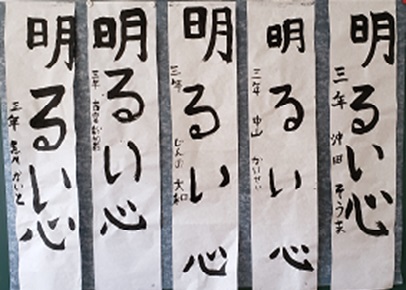 明るい心
三年 沖田 そうま
明るい心
三年 中山 かいせい
明るい心
三年 大和
明るい心
三年
明るい心
三年 かいと